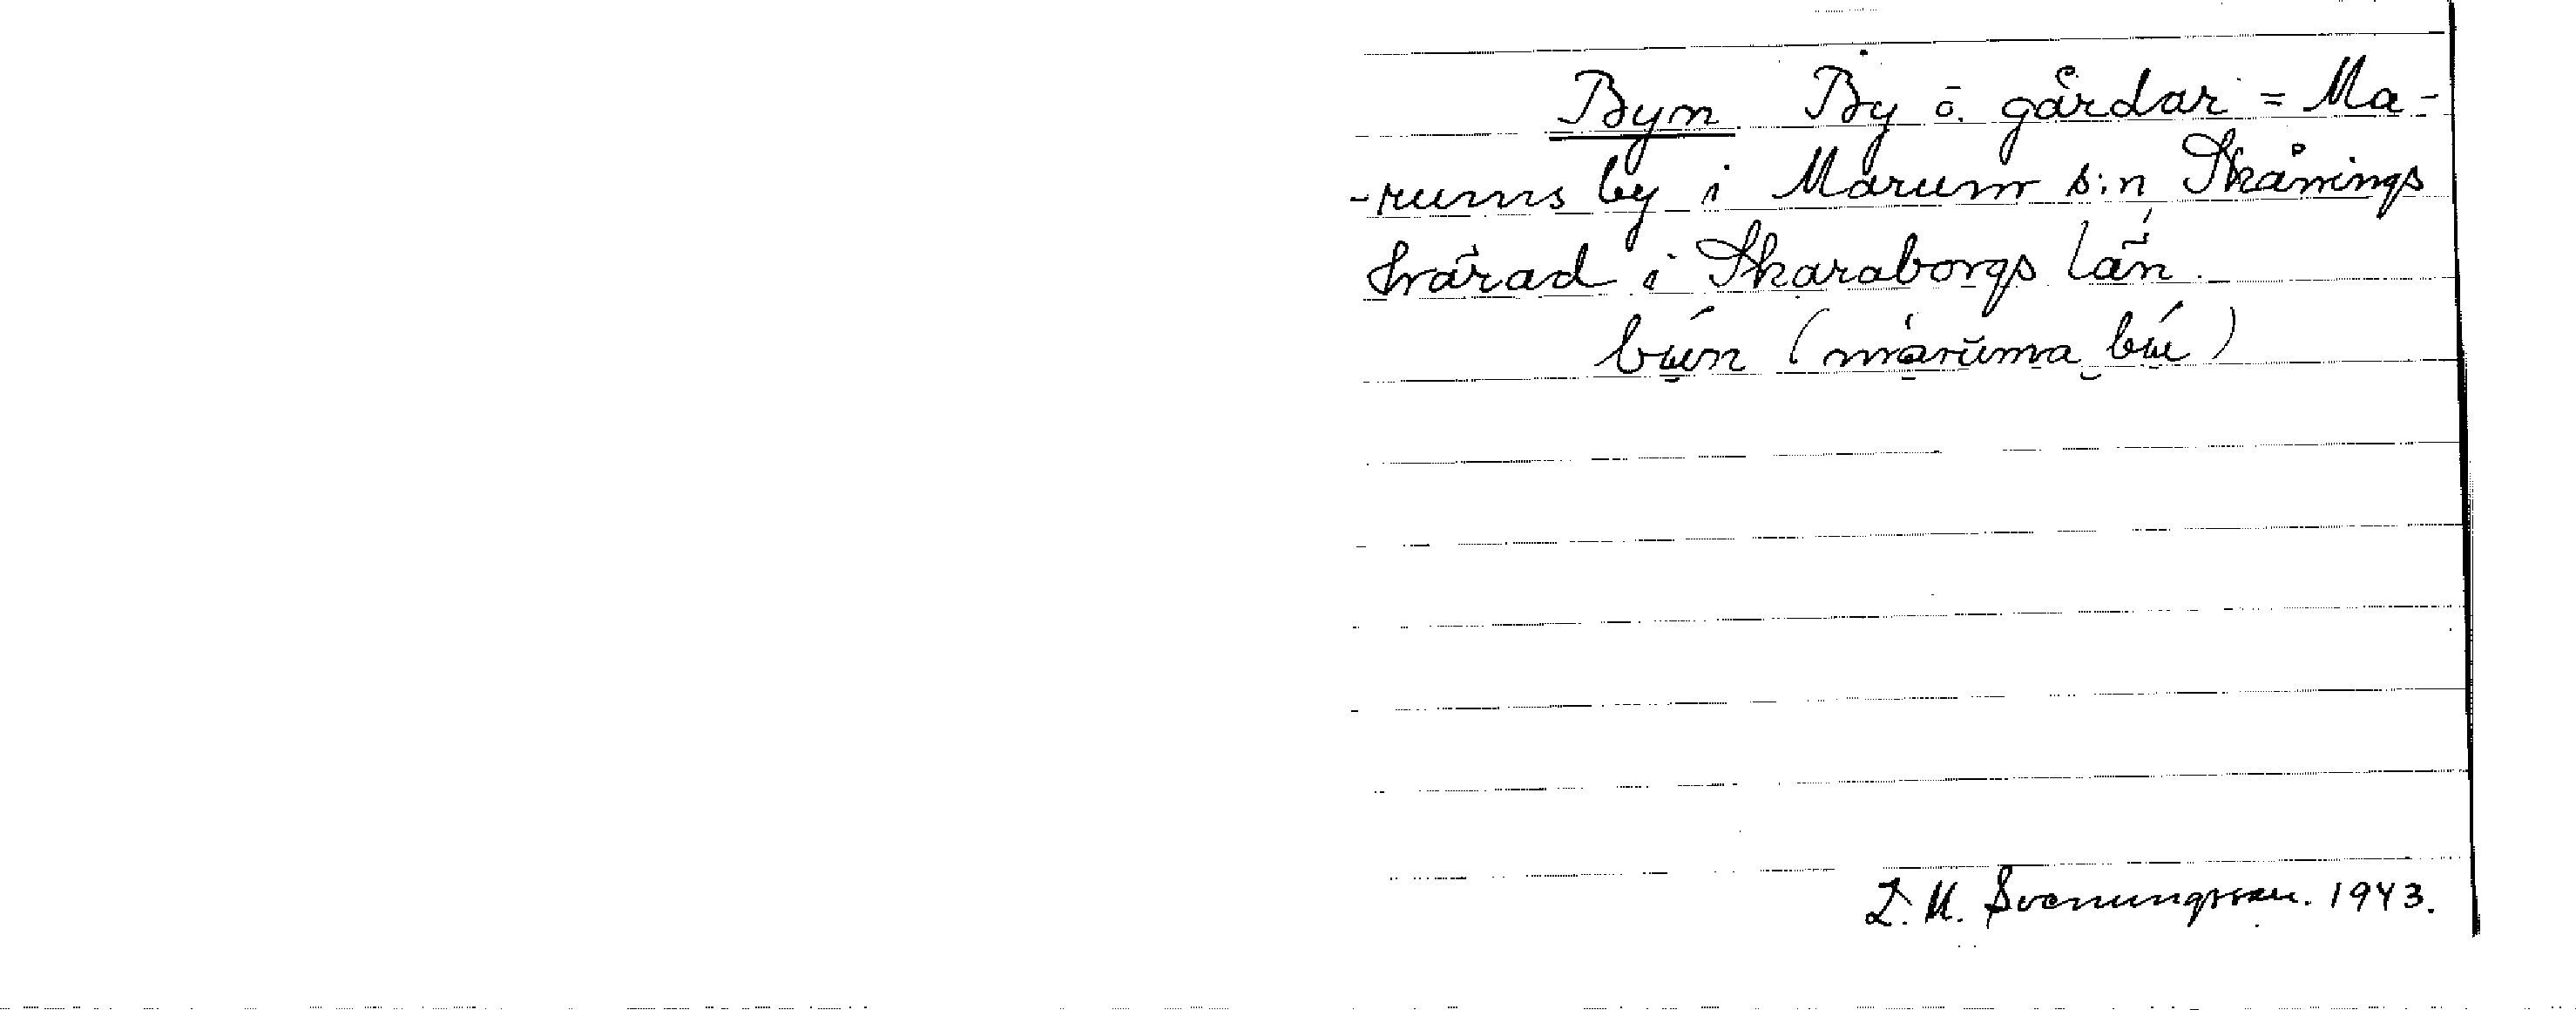 Byn By ō. gårdar = Ma-
-rums by i Marum s:n Skånings
härad i Skaraborgs län.
L. M. Svenungsson. 1943.